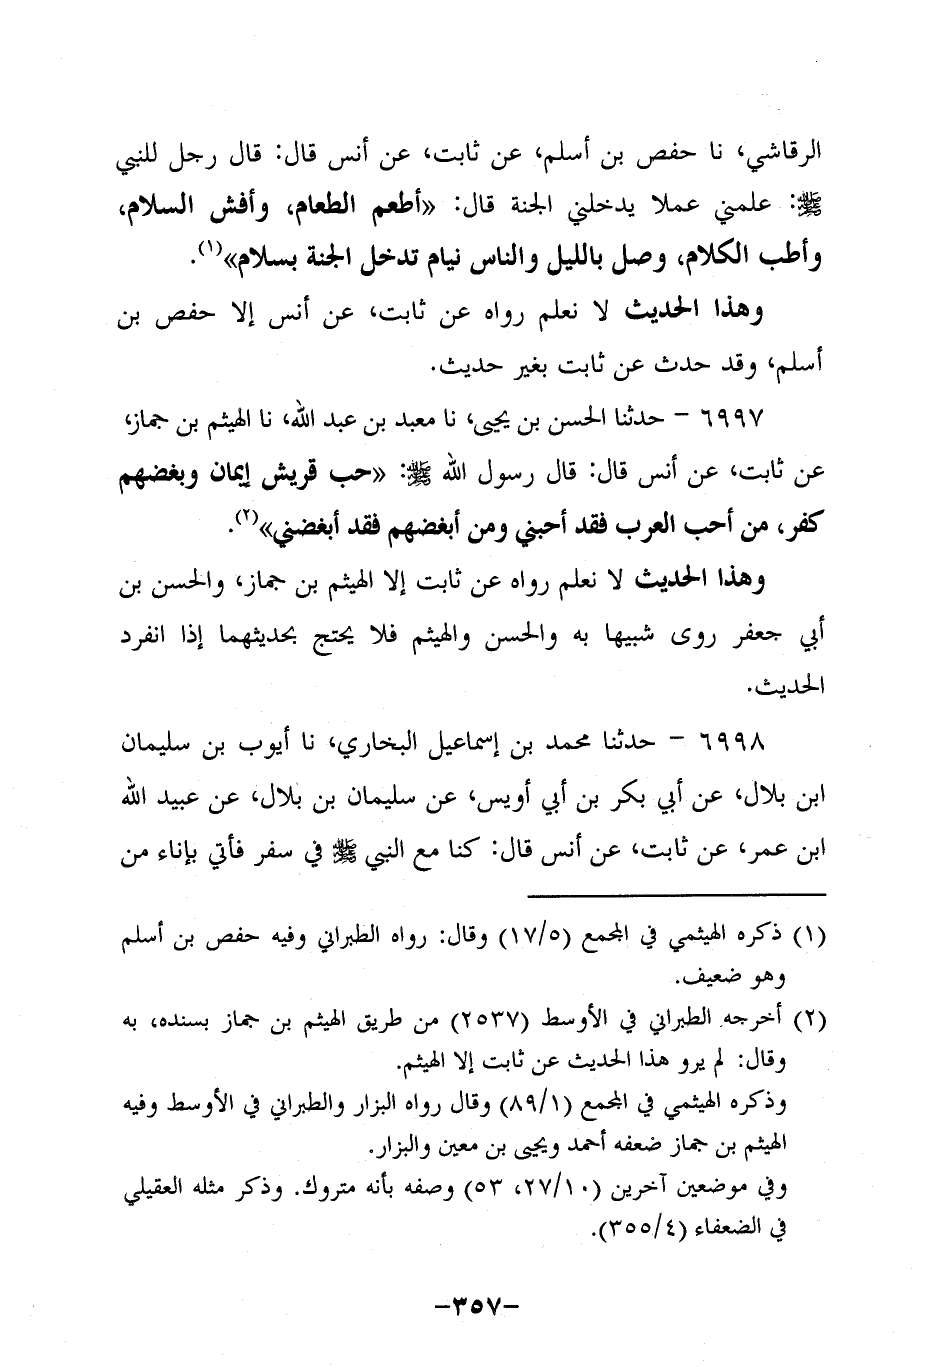 الرقاشي، نا حفص بن أسلم، عن ثابت، عن أنس قال: قال رجل للنبي
ﷺ: علمني عملا يدخلني الجنة قال: «أطعم الطعام، وأفش السلام،
وأطب الكلام، وصل بالليل والناس نيام تدخل الجنة بسلام»(١).
وهذا الحديث لا نعلم رواه عن ثابت، عن أنس إلا حفص بن
أسلم، وقد حدث عن ثابت بغير حديث.
٦٩٩٧ - حدثنا الحسن بن يحيى، نا معبد بن عبد الله، نا الهيثم بن جماز،
عن ثابت، عن أنس قال: قال رسول الله ﷺ: «حب قريش إيمان وبغضهم
كفر، من أحب العرب فقد أحبني ومن أبغضهم فقد أبغضني»(٢).
وهذا الحديث لا نعلم رواه عن ثابت إلا الهيثم بن جماز، والحسن بن
أبي جعفر روى شبيها به والحسن والهيثم فلا يحتج بحديثهما إذا انفرد
الحديث.
٦٩٩٨ - حدثنا محمد بن إسماعيل البخاري، نا أيوب بن سليمان
ابن بلال، عن أبي بكر بن أبي أويس، عن سليمان بن بلال، عن عبيد الله
ابن عمر، عن ثابت، عن أنس قال: كنا مع النبي ﷺ في سفر فأتي بإناء من
(١) ذكره الهيثمي في المجمع (١٧/٥) وقال: رواه الطبراني وفيه حفص بن أسلم
وهو ضعيف.
(٢) أخرجه الطبراني في الأوسط (٢٥٣٧) من طريق الهيثم بن جماز بسنده، به
وقال: لم يرو هذا الحديث عن ثابت إلا الهيثم.
وذكره الهيثمي في المجمع (٨٩/١) وقال رواه البزار والطبراني في الأوسط وفيه
الهيثم بن جماز ضعفه أحمد ويحيى بن معين والبزار.
وفي موضعين آخرين (٢٧/١٠، ٥٣) وصفه بأنه متروك. وذكر مثله العقيلي
في الضعفاء (٣٥٥/٤).
-٣٥٧-